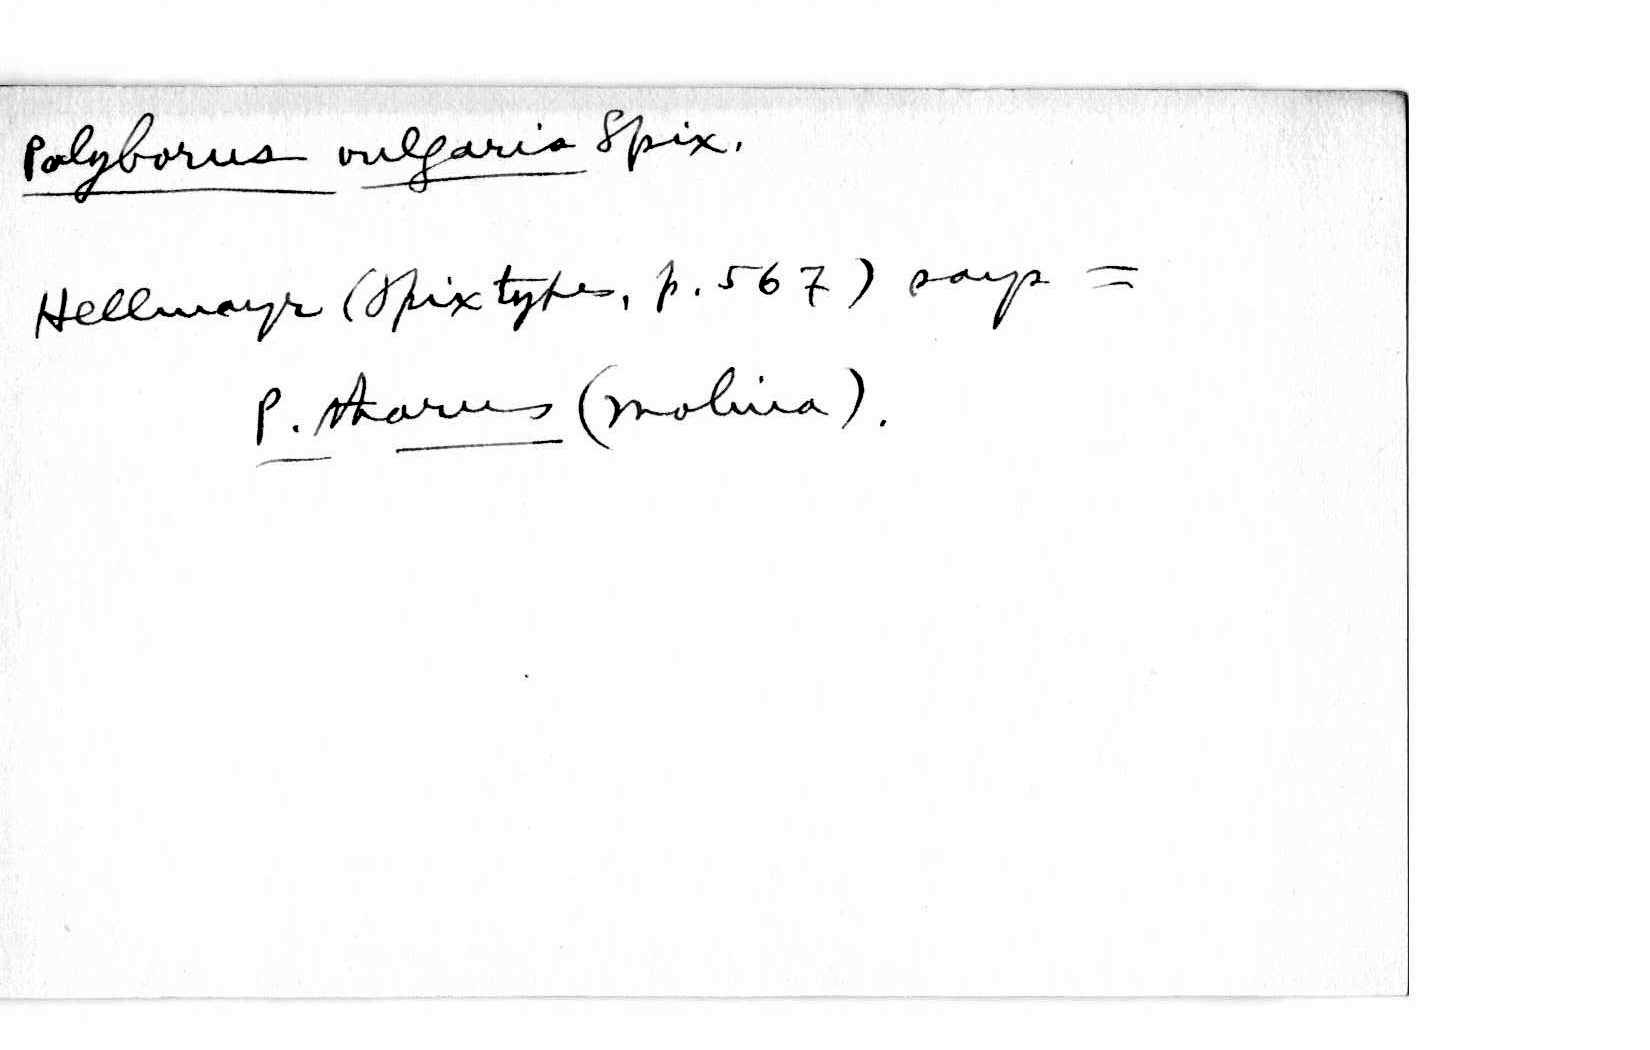 Polyborus vulgaris Spix.
Hellmayr (Spix types, p. 567) says =
P. tharus (Molina).